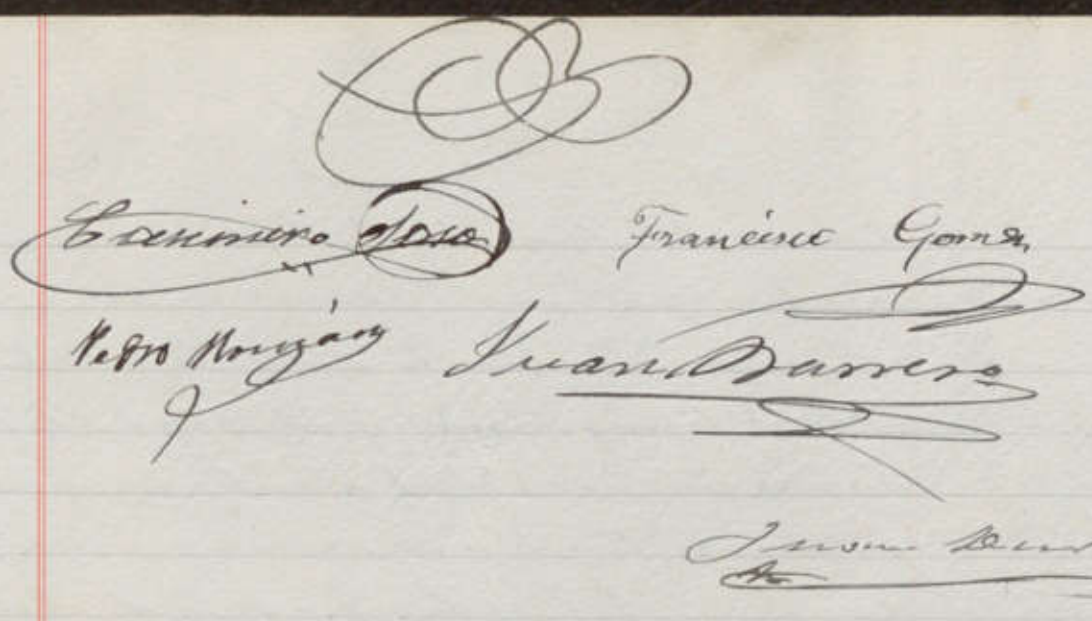 Casimiro Sosa Francisco Gomez
Pedro Monzón Juan Barrera
Juan